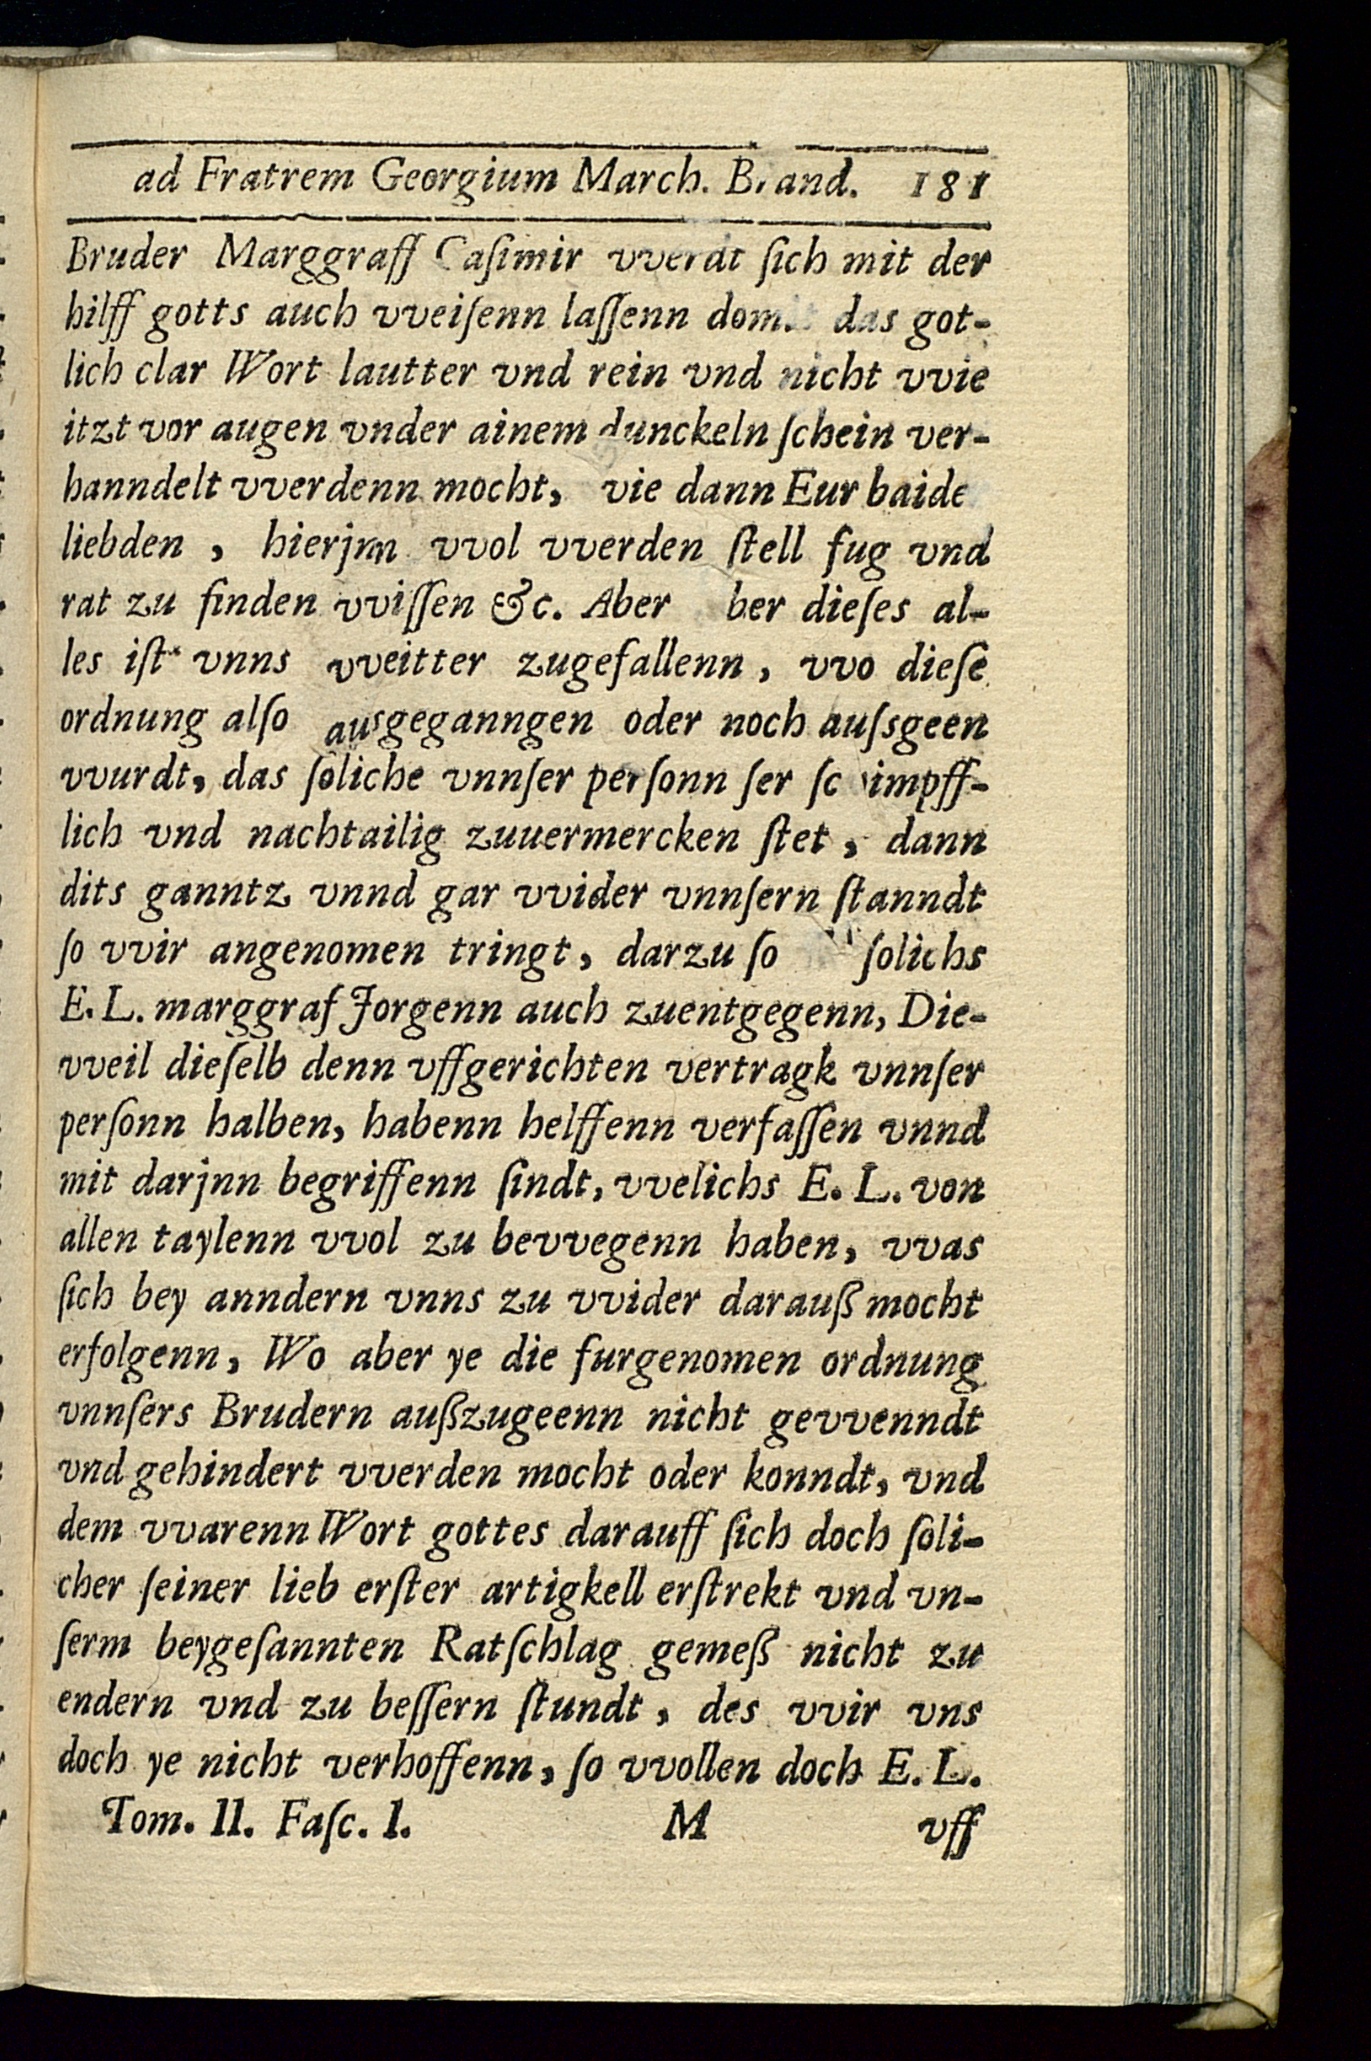 ad Fratrem Georgium March. Brand. 181
Bruder Marggraff Caſimir vverdt ſich mit der
hilff gotts auch vveiſenn laſſenn domit das got-
lich clar Wort lautter vnd rein vnd nicht vvie
itzt vor augen vnder ainem dunckeln ſchein ver-
hanndelt vverdenn mocht, vie dann Eur baide
liebden, hierjnn vvol vverden ſtell fug vnd
rat zu finden vviſſen &c. Aber ber dieſes al-
les iſt vnns vveitter zugefallenn, vvo dieſe
ordnung alſo ausgeganngen oder noch auſsgeen
vvurdt, das ſoliche vnnſer perſonn ſer ſchimpff-
lich vnd nachtailig zuuermercken ſtet, dann
dits ganntz vnnd gar vvider vnnſern ſtanndt
ſo vvir angenomen tringt, darzu ſo ſolichs
E. L. marggraf Jorgenn auch zuentgegenn, Die-
vveil dieſelb denn vffgerichten vertragk vnnſer
perſonn halben, habenn helffenn verfaſſen vnnd
mit darjnn begriffenn ſindt, vvelichs E. L. von
allen taylenn vvol zu bevvegenn haben, vvas
ſich bey anndern vnns zu vvider darauß mocht
erfolgenn, Wo aber ye die furgenomen ordnung
vnnſers Brudern außzugeenn nicht gevvenndt
vnd gehindert vverden mocht oder konndt, vnd
dem vvarenn Wort gottes darauff ſich doch ſoli-
cher ſeiner lieb erſter artigkell erſtrekt vnd vn-
ſerm beygeſannten Ratſchlag gemeß nicht zu
endern vnd zu beſſern ſtundt, des vvir vns
doch ye nicht verhoffenn, ſo vvollen doch E. L.
Tom. II. Faſc. I. M vff